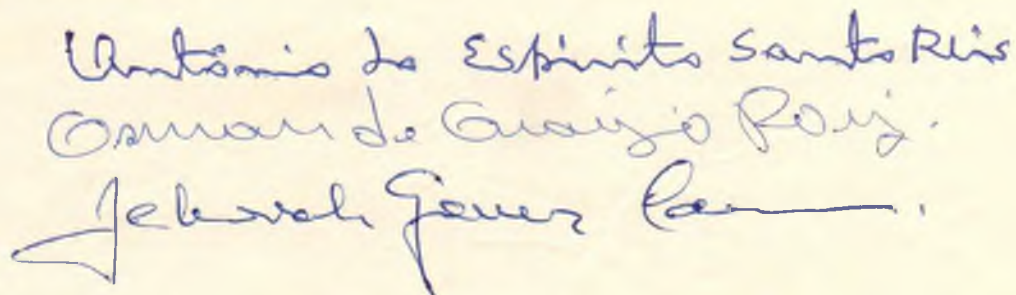 Antônio do Espírito Santo Reis
Osman de Araújo
Jehovah Gomes